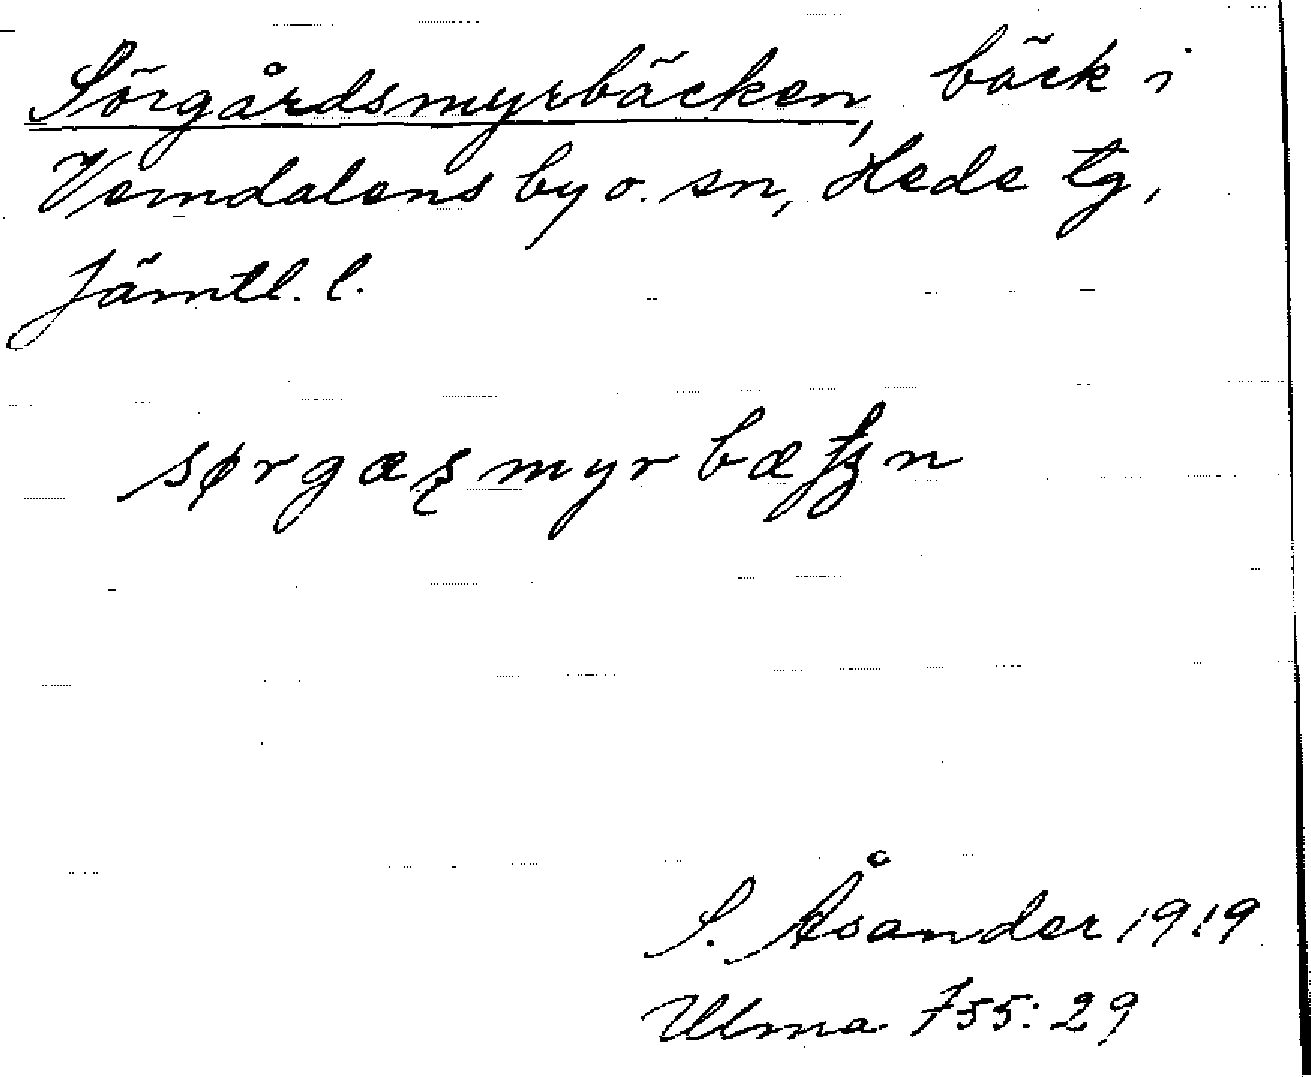 Sörgårdsmyrbäcken, bäck i
Vemdalens by o. sn, Hede tg,
Jämtl. l.
S. Åsander 1919
Ulma 755:29